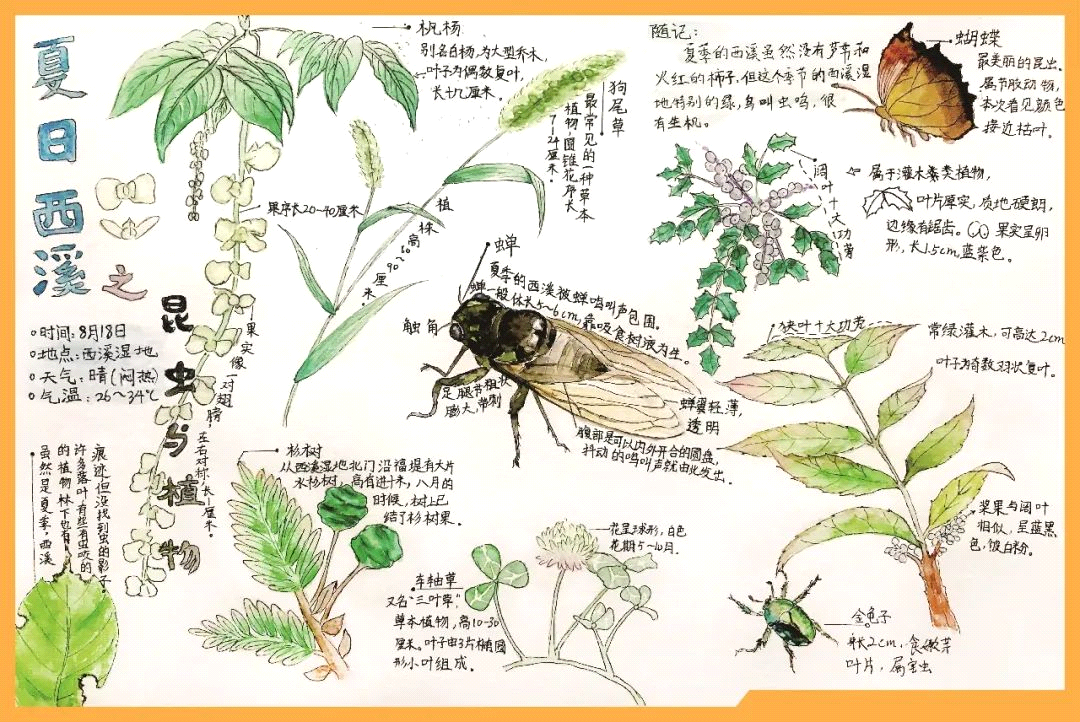 夏日西溪之
昆虫与植物
时间:8月18日
地点:西溪湿地
天气:晴(闷热)
气温:26~34℃
枫杨
别名白杨,为大型乔木,
叶子为偶数复叶,
长十几厘米。
果序长20~40厘米
果实像
一对翅膀
左右对称,长1厘米。
狗尾草
最常见的一种草本
植物,圆锥花序长
7~24厘米。
植株高
90
厘米
随记:
夏季的西溪虽然没有芦苇和
火红的柿子,但这个季节的西溪湿
地特别的绿,鸟叫虫鸣,很
有生机。
蝴蝶
最美丽的昆虫。
属节肢动物,
本次看见颜色
接近枯叶。
阔叶十大功劳
属于灌木类植物,
叶片厚实,质地硬朗,
边缘有锯齿。果实呈卵
形,长1.5cm,蓝紫色。
蝉
夏季的西溪被蝉鸣叫声包围。
蝉一般体长5~6cm,靠吸食树液为生。
触角
足腿节粗状
膨大,带刺
蝉翼轻薄,
透明
腹部是可以内外开合的圆盘,
抖动的鸣叫声就由此发出。
狭叶十大功劳
常绿灌木,可高达2cm
叶子为奇数羽状复叶。
浆果与阔叶
相似,呈蓝黑
色,被白粉。
杉树
从西溪湿地北门沿福堤有大片
水杉树,高有进十米,八月的
时候,树上已
结了杉树果。
花呈球形,白色
花期5~10月.
车轴草
又名"三叶草",
草本植物,高10-30
厘米。叶子由3片椭圆
形小叶组成。
金龟子
身长2cm,食嫩芽
叶片,属害虫
虽然是夏季,西溪
的植物林下也有
许多落叶,有些有虫咬的
痕迹,但没找到虫的影子